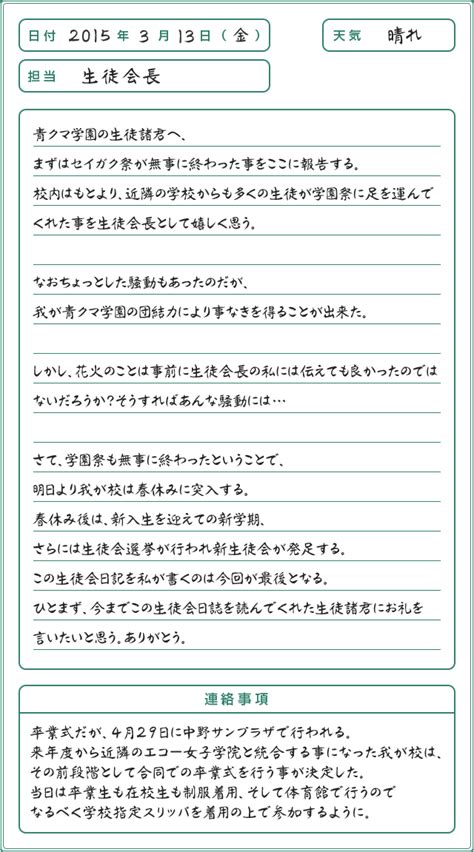 日付 2015年 3月 13日(金)
天気 晴れ
担当 生徒会長
青クマ学園の生徒諸君へ、
まずはセイガク祭が無事に終わった事をここに報告する。
校内はもとより、近隣の学校からも多くの生徒が学園祭に足を運んで
くれた事を生徒会長として嬉しく思う。
なおちょっとした騒動もあったのだが、
我が青クマ学園の団結力により事なきを得ることが出来た。
しかし、花火のことは事前に生徒会長の私には伝えても良かったのでは
ないだろうか?そうすればあんな騒動には…
さて、学園祭も無事に終わったということで、
明日より我が校は春休みに突入する。
春休み後は、新入生を迎えての新学期、
さらには生徒会選挙が行われ新生徒会が発足する。
この生徒会日記を私が書くのは今回が最後となる。
ひとまず、今までこの生徒会日誌を読んでくれた生徒諸君にお礼を
言いたいと思う。ありがとう。
連絡事項
卒業式だが、4月29日に中野サンプラザで行われる。
来年度から近隣のエコー女子学院と統合する事になった我が校は、
その前段階として合同での卒業式を行う事が決定した。
当日は卒業生も在校生も制服着用、そして体育館で行うので
なるべく学校指定スリッパを着用の上で参加するように。